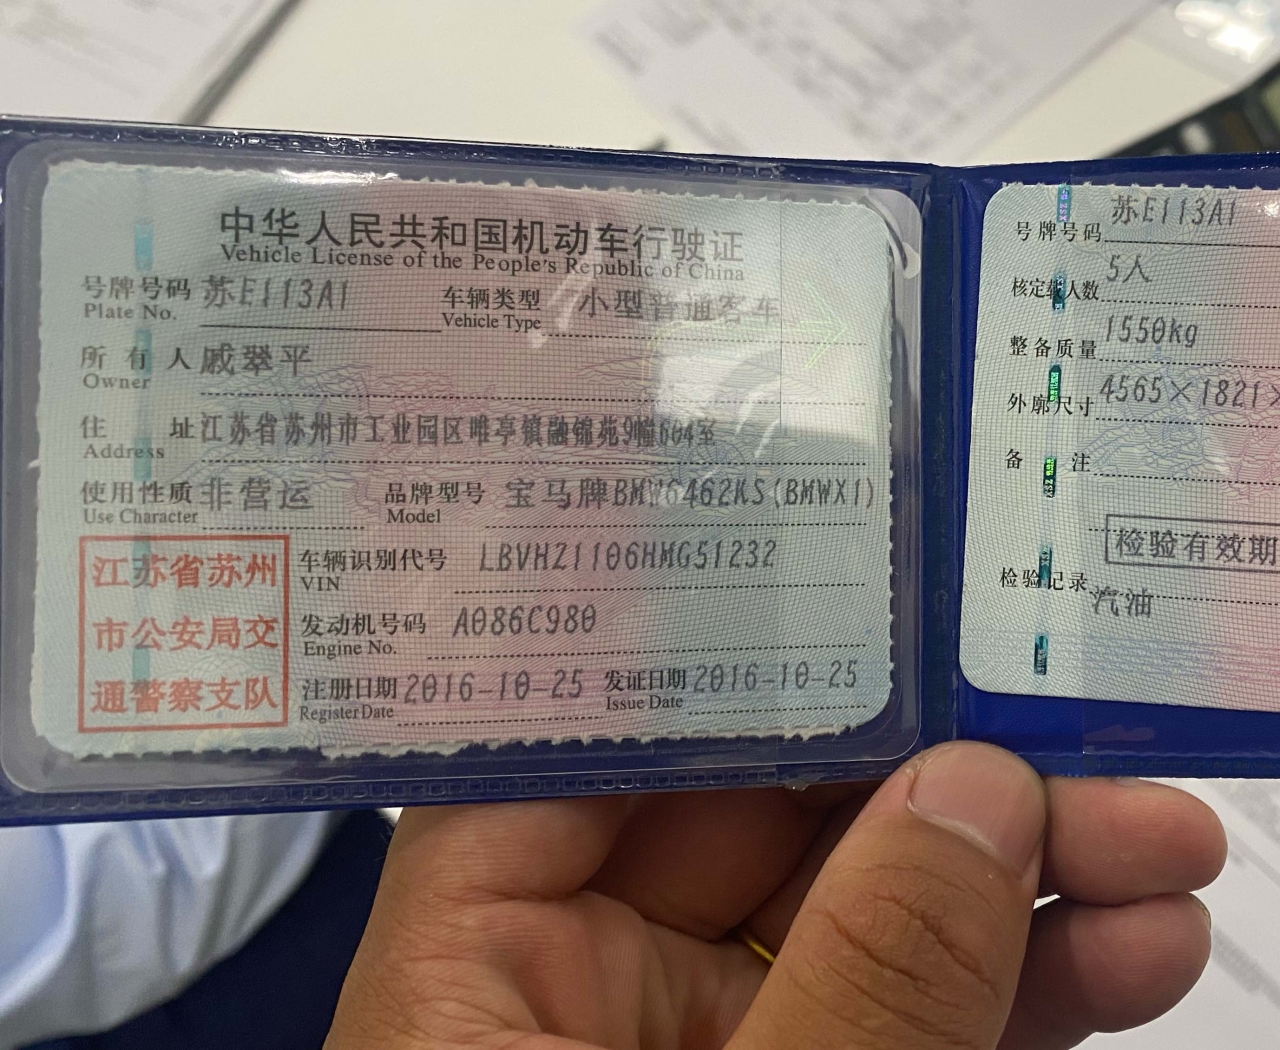 中华人民共和国机动车行驶证
Vehicle License of the People's Republic of China
号牌号码 苏E113A1 车辆类型 小型普通客车
Plate No. Vehicle Type
所有人 戚翠平
Owner
住址 江苏省苏州市工业园区唯亭镇融锦苑9幢604室
Address
使用性质 非营运 品牌型号 宝马牌BMW6462KS(BMWX1)
Use Character Model
江苏省苏州
市公安局交
通警察支队
车辆识别代号 LBVHZ1106HMG51232
VIN
发动机号码 A086C980
Engine No.
注册日期 2016-10-25 发证日期 2016-10-25
Register Date Issue Date
号牌号码 苏E113A1
核定载人数 5人
整备质量 1550kg
外廓尺寸 4565×1821×
备注
检验有效期
检验记录
汽油